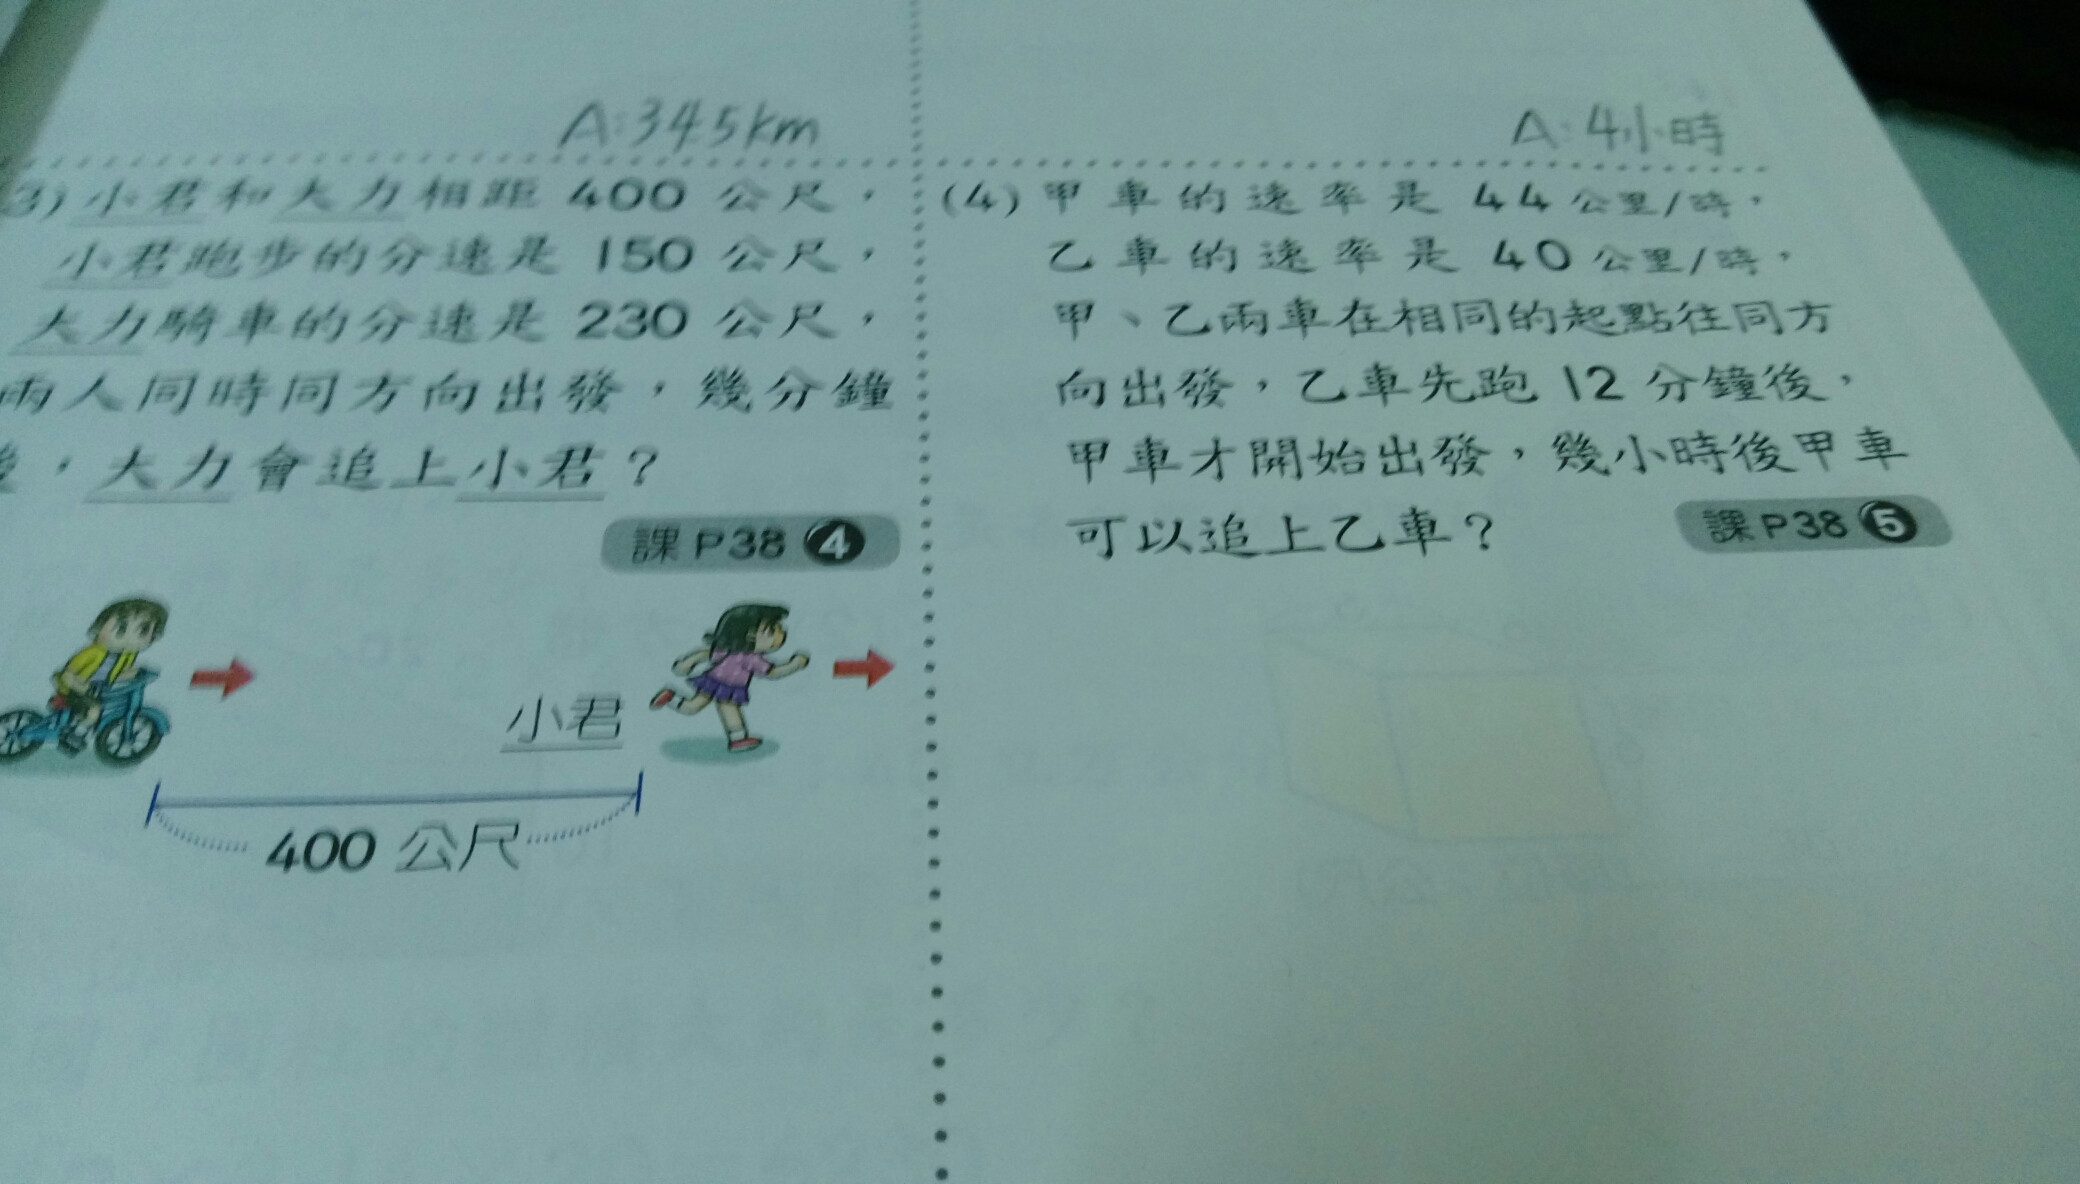 A:345km
3)小君和大力相距 400 公尺，
小君跑步的分速是 150 公尺，
大力騎車的分速是 230 公尺，
兩人同時同方向出發，幾分鐘
，大力會追上小君？
課P38 4
小君
400 公尺
A:4小時
(4)甲車的速率是 44 公里/時，
乙車的速率是 40 公里/時，
甲、乙兩車在相同的起點往同方
向出發，乙車先跑 12 分鐘後，
甲車才開始出發，幾小時後甲車
可以追上乙車？
課P38 5